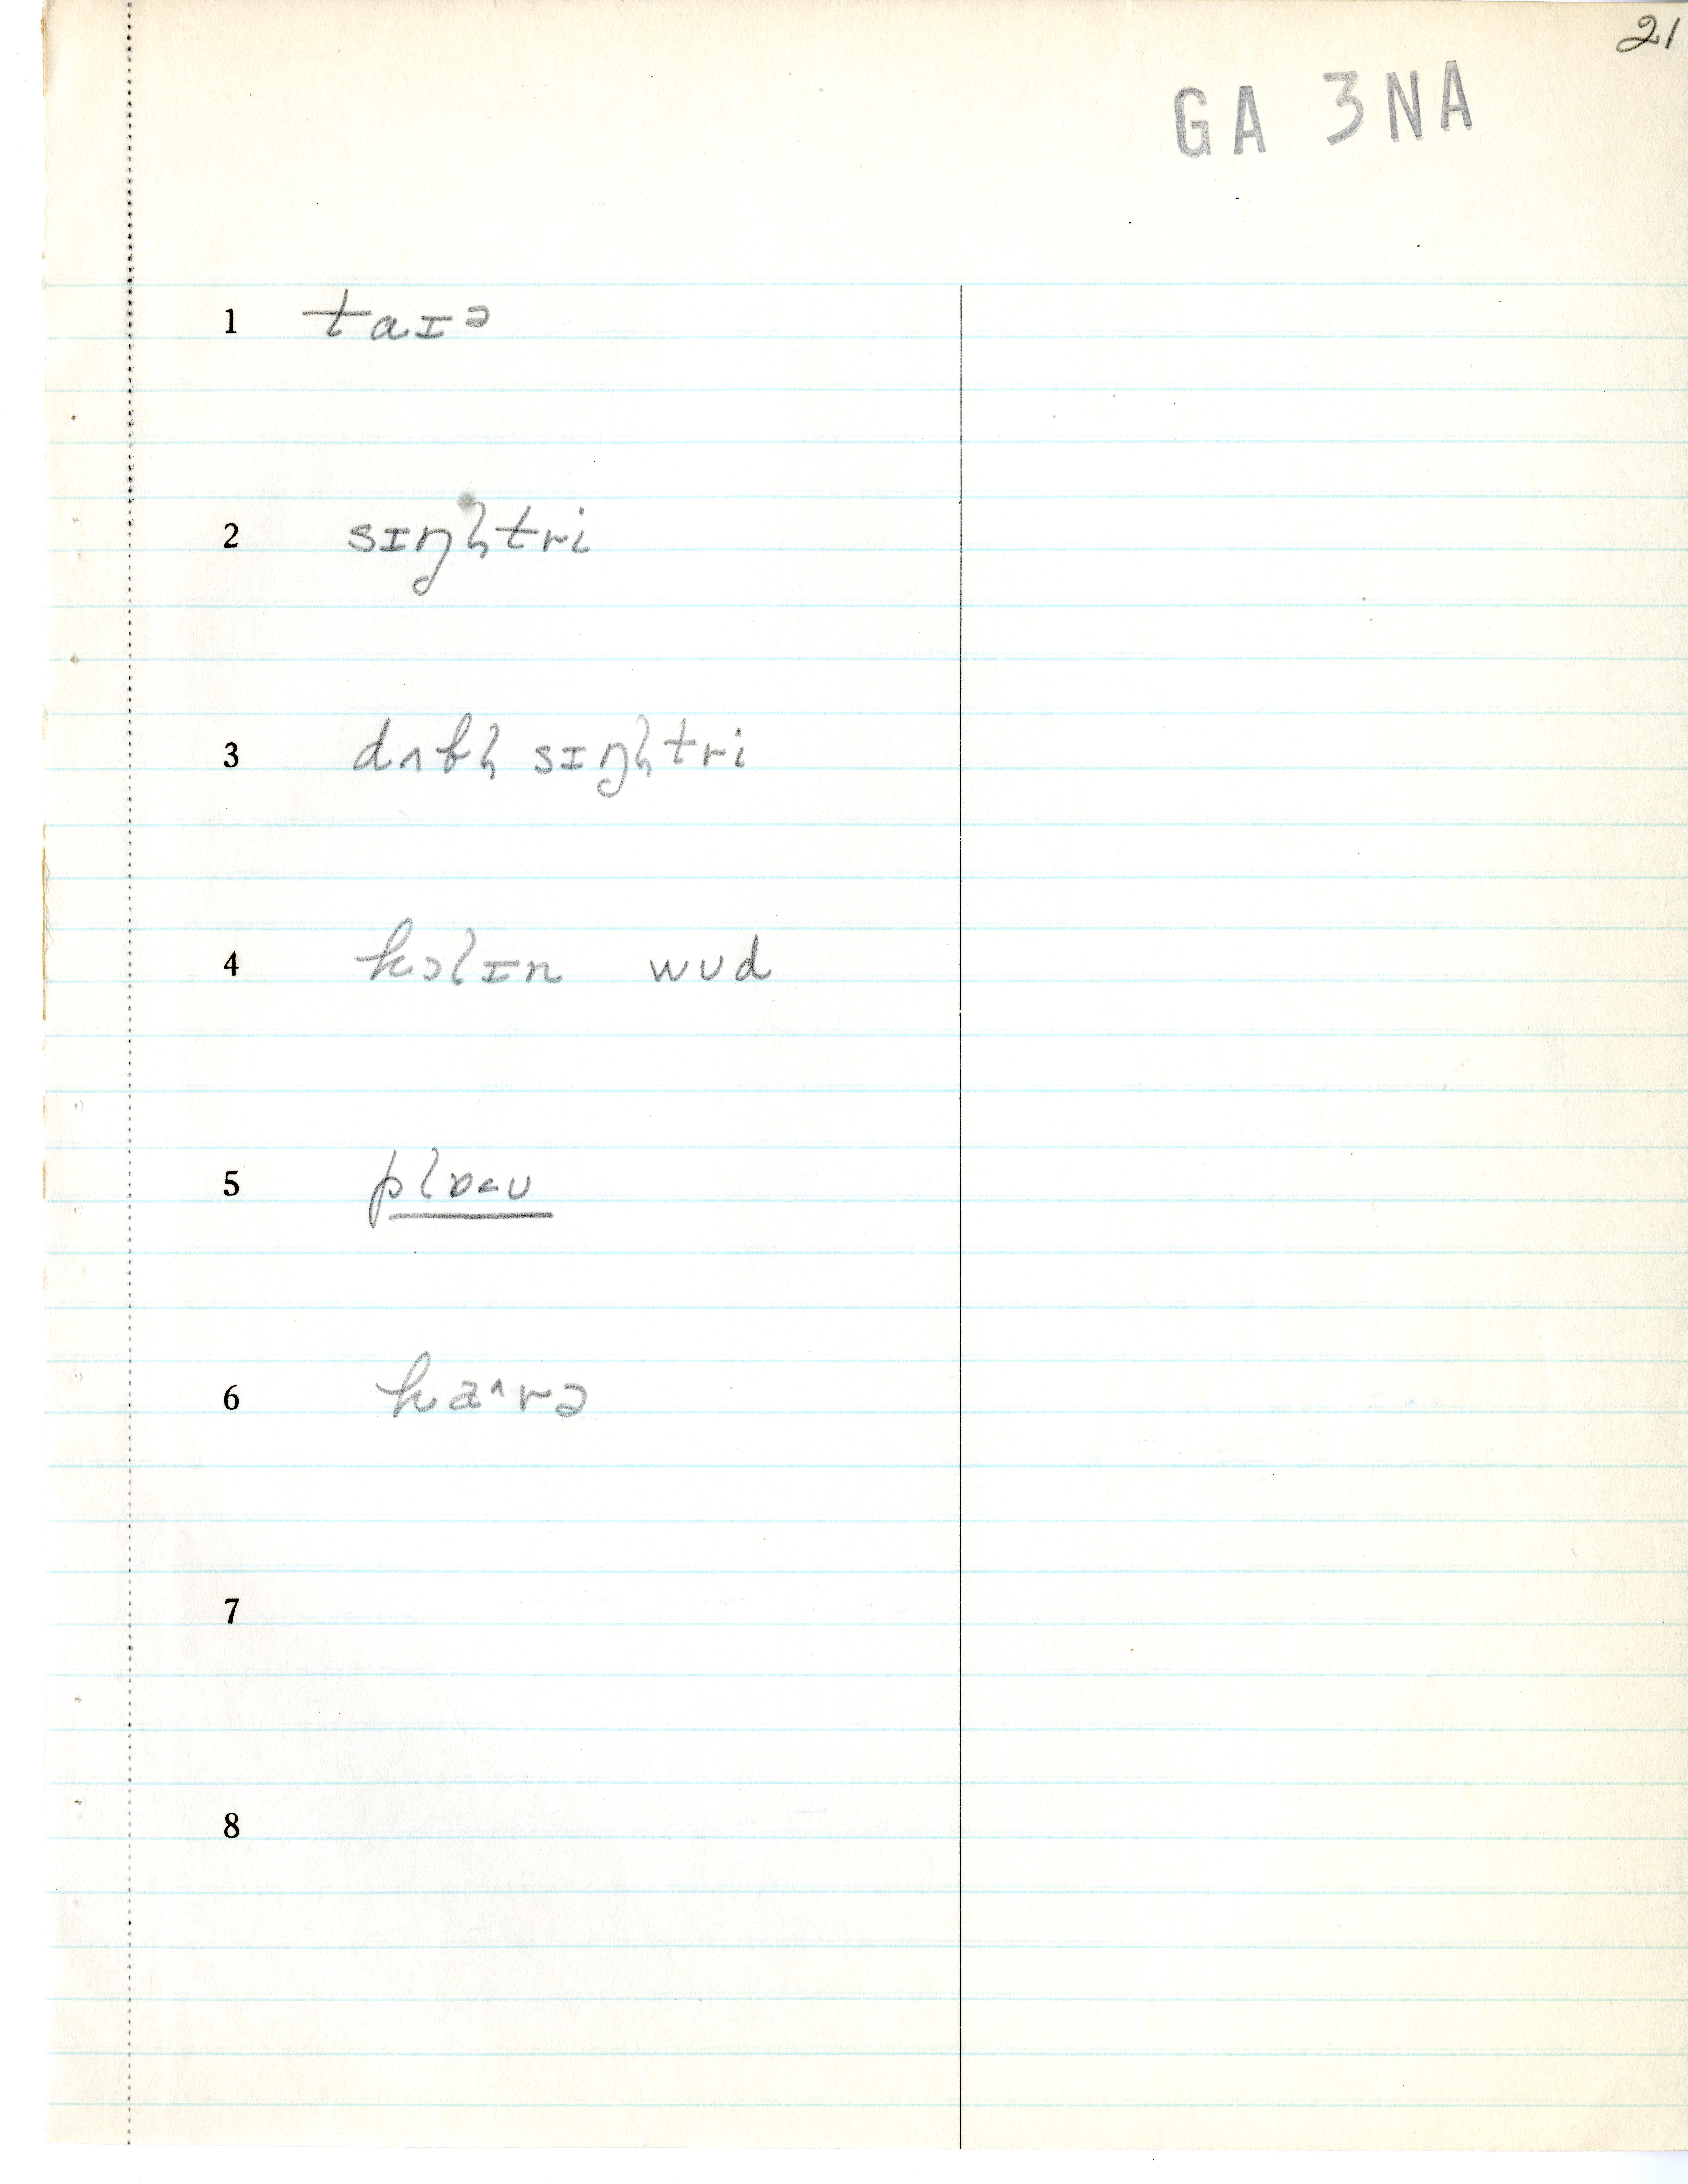 21
GA 3NA
1 taɪᵊ
2 sɪŋl̩tri
3 dʌbl̩ sɪŋl̩tri
4 hɔlɪn wʊd
5 plæ<ʊ
6 ha^rə
7
8